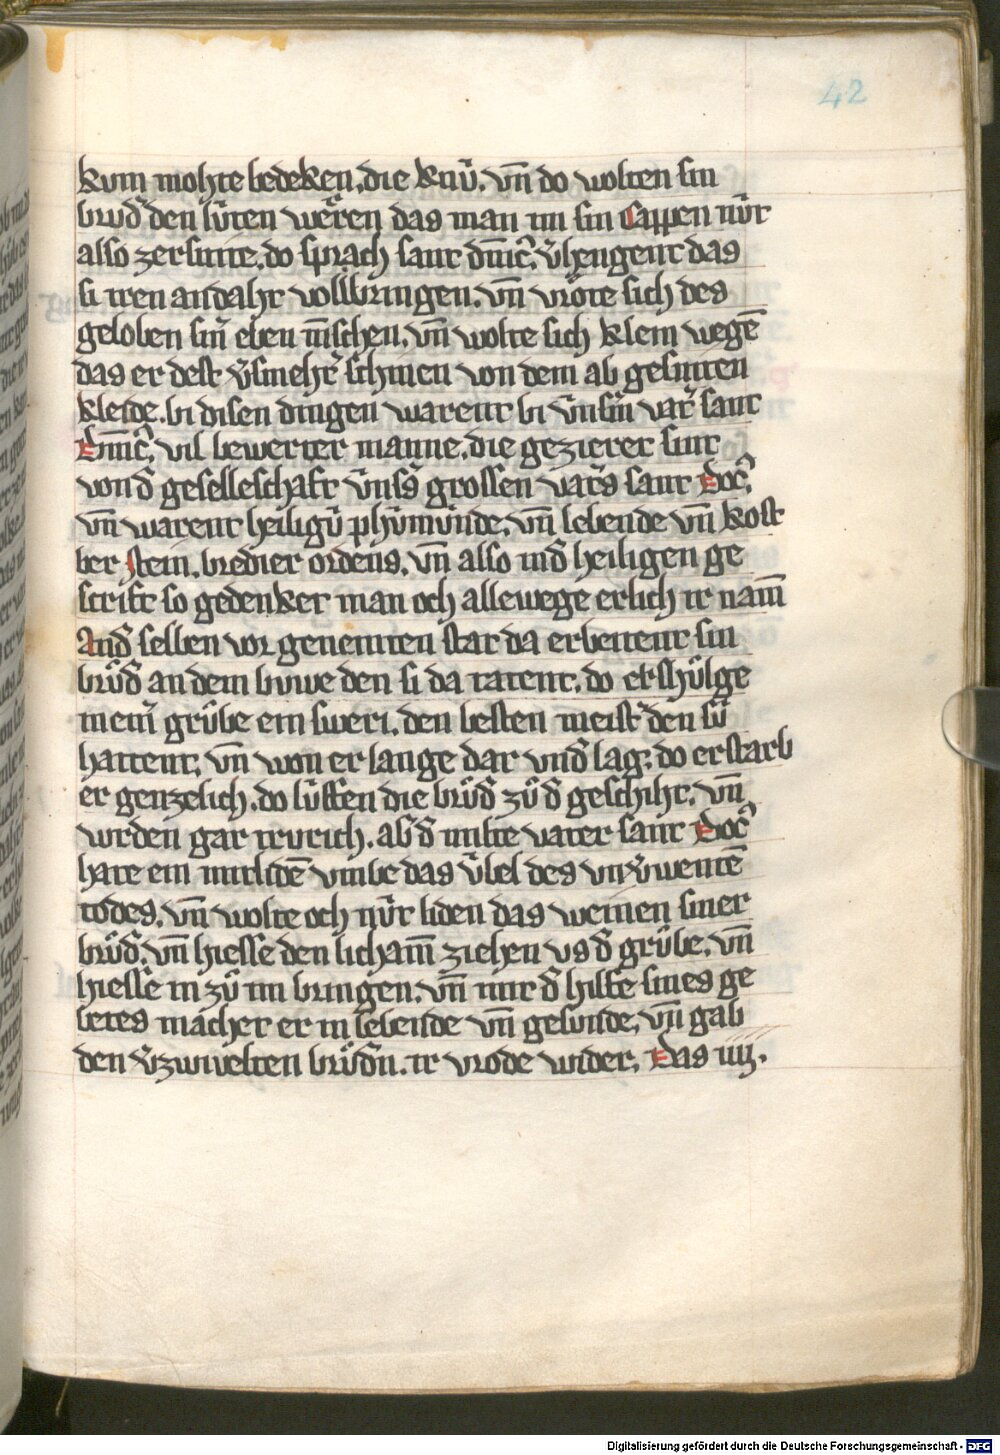 42
kvm mohte bedeken. die knú. vn̄ do wolten sin
brud̾ den lúten weren das man im sin cappen nút
also zersnitte. do sprach sant dm̄ic̾. v̾hengent das
si iren andaht vollbringen. vn̄ vröte sich des
geloben sin̄ eben m̄schen. vn̄ wolte sich klein wegē
das er dest v̾smeher̾ schinen von dem ab gesnitten
kleide. bi disen dingen warent bi v̄nsm̄ vat̾ sant
Dm̄ic̾. vil bewerter manne. die gezieret sint
von d̾ geselleschaft v̄ns̾s grossen vat̾s sant Doc̾.
vn̄ warent heiligú phúmúnde. vn̄ lebende vn̄ kost
ber stein. bredier ordens. vn̄ also in d̾ heiligen ge
scrift so gedenket man och allewege erlich ir nam̄
And̾ selben vor genemten stat da erbeitent sin
brǔd̾ an dem buwe den si da tatent. do
grůbe ein swert. den besten meist̾ den sú
hattent. vn̄ won er lange dar vnd̾ lag. do erstarb
er genzelich. do lúffen die brůd̾ zů d̾ geschiht. vn̄
wrden gar trurich. ab̾ d̾ milte vater sant Doc̾
hate ein mitlidē vmbe das v́bel des vnv̾wentē
todes. vn̄ wolte och nút liden das weinen siner
brůd̾. vn̄ hiesse den licham̄ ziehen vs d̾ grůbe. vn̄
hiesse in zů im bringen. vn̄ mit d̾ hilfe sines ge
betes machet er in lebende vn̄ gesunde. vn̄ gab
den v̾zwivelten brůd̾n. ir vrode wider. Das iiij.
Digitalisierung gefördert durch die Deutsche Forschungsgemeinschaft - DFG